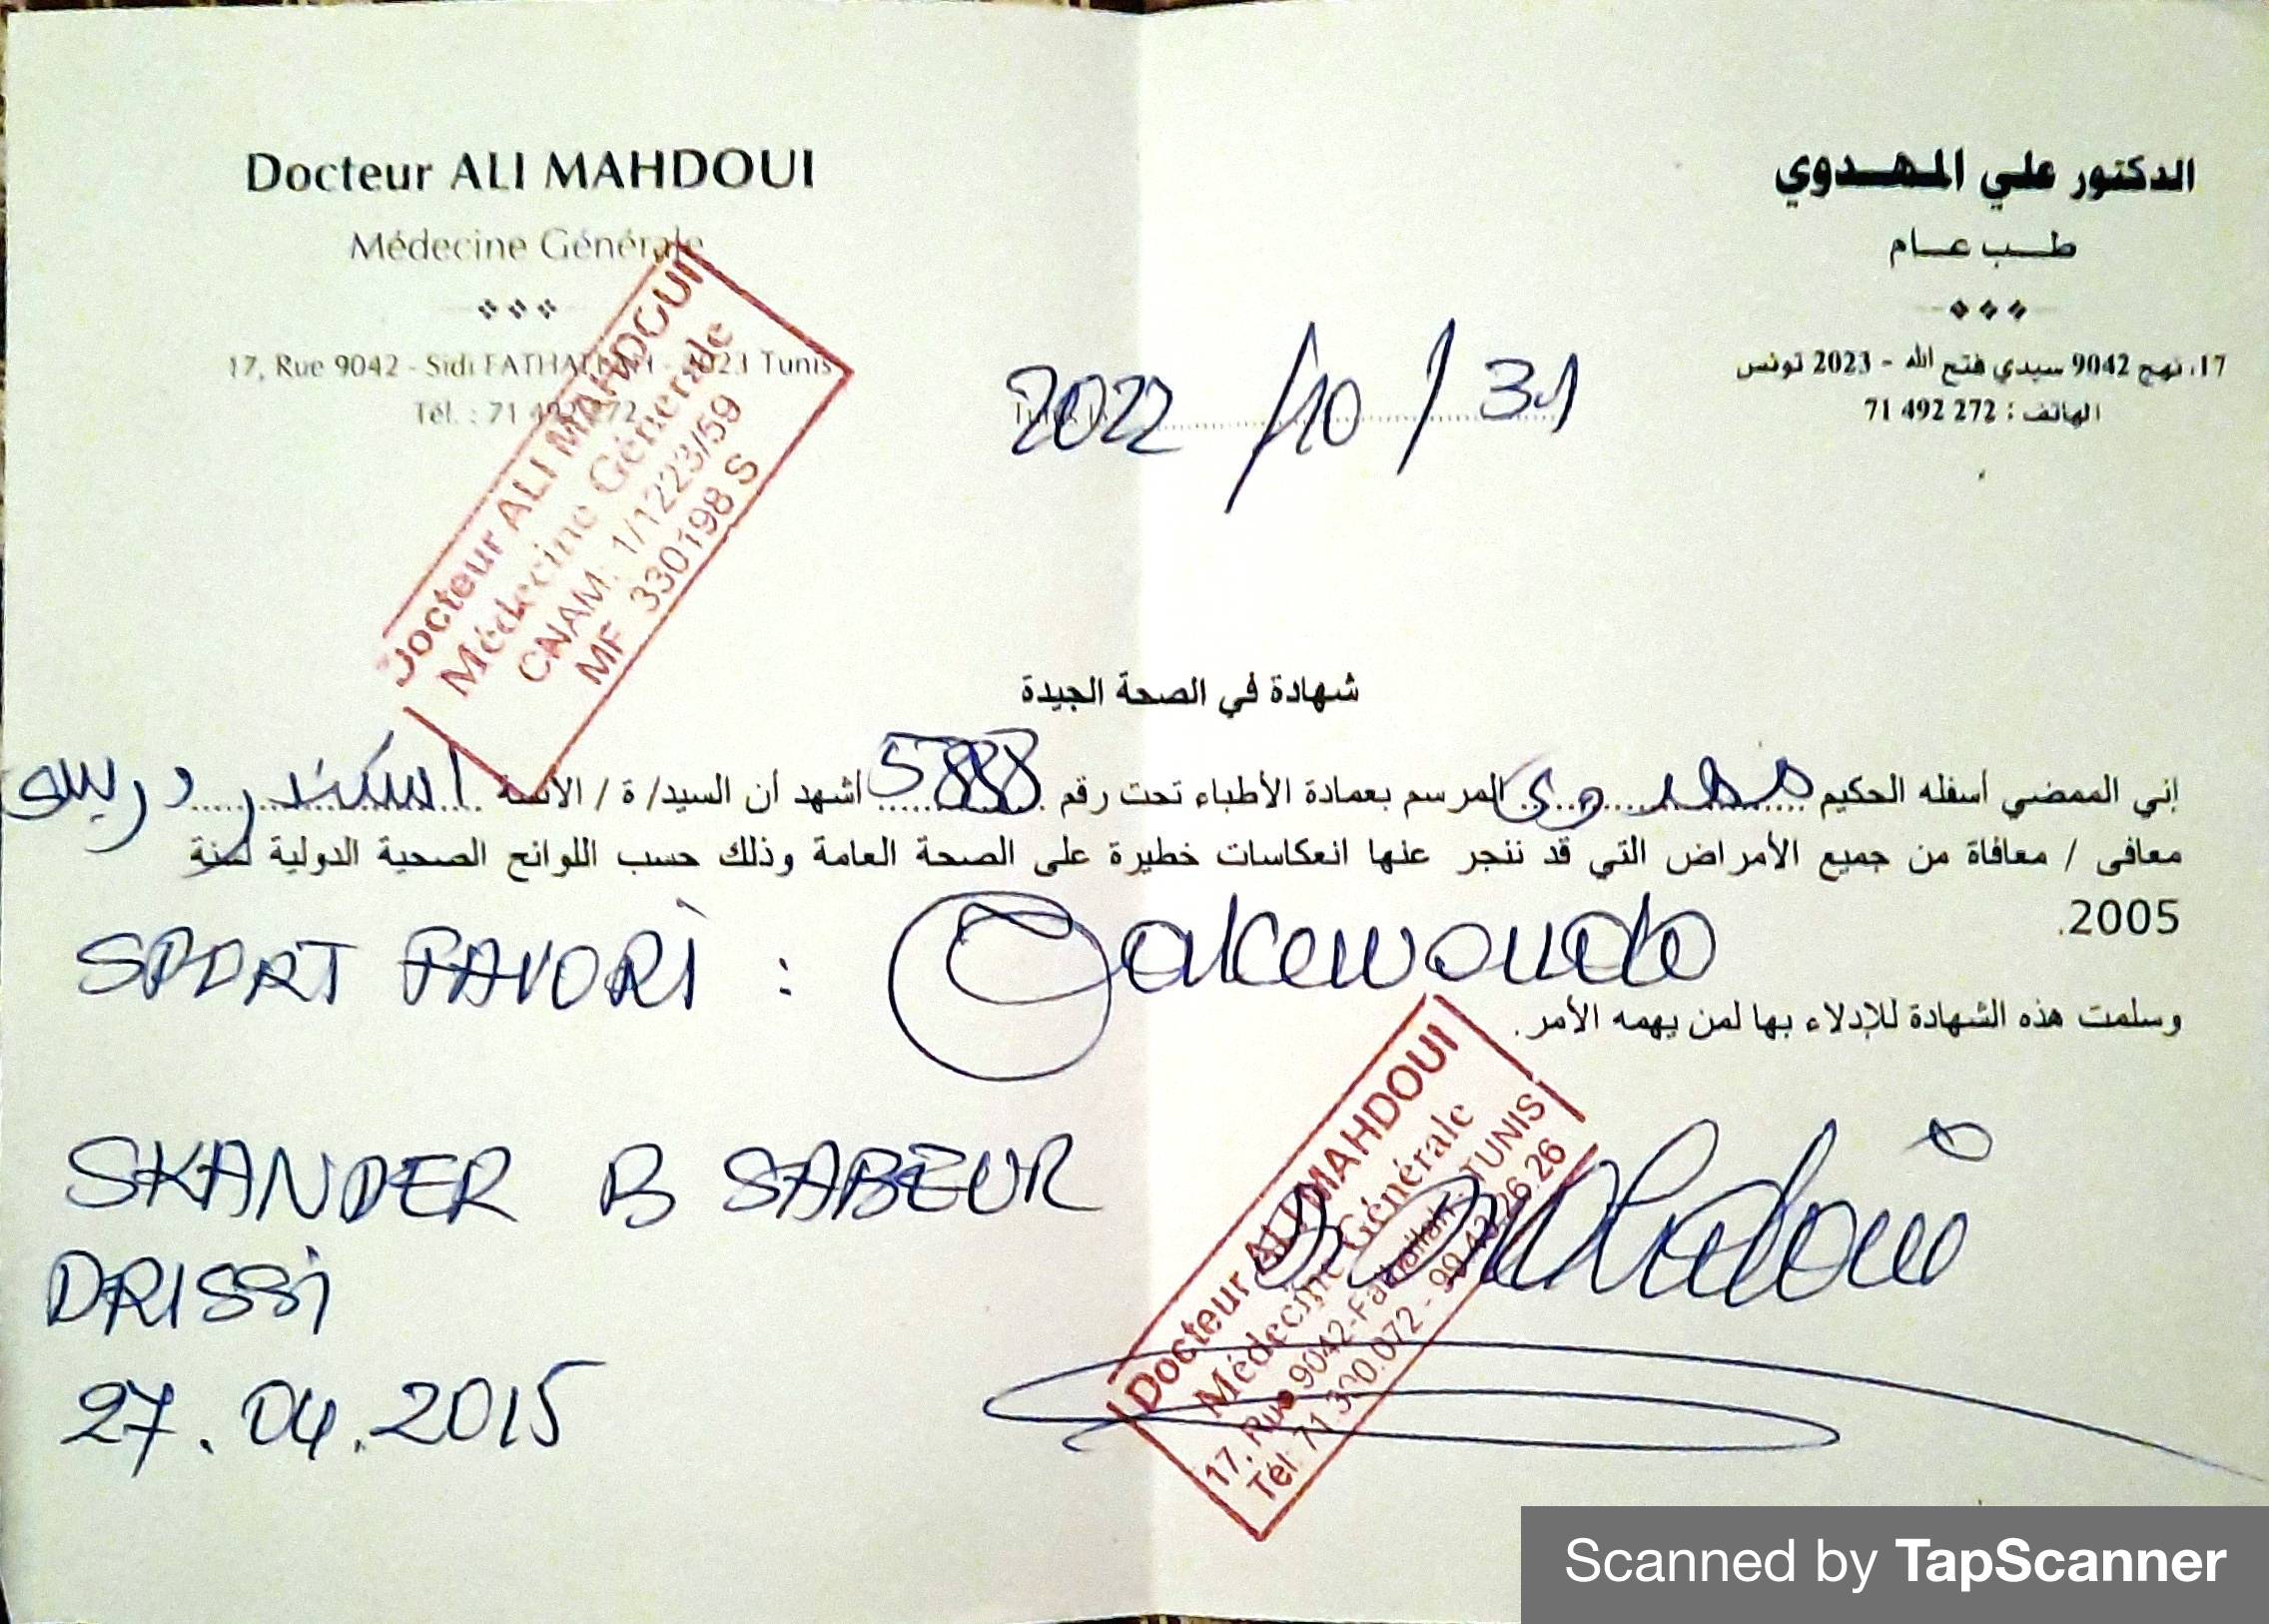 Docteur ALI MAHDOUI
Médecine Générale
17, Rue 9042 - Sidi FATHALLAH - 2023 Tunis
Tél. : 71 492 272
الدكتور علي المهدوي
طب عام
17، نهج 9042 سيدي فتح الله - 2023 تونس
الهاتف : 272 492 71
2022/10/31
Docteur ALI MAHDOUI
Médecine Générale
CNAM: 1/1223/59
MF 330198 S
شهادة في الصحة الجيدة
إني الممضي أسفله الحكيم مهدوي المرسم بعمادة الأطباء تحت رقم أشهد أن السيد/ ة / الآنسة اسكندر دريسي
معافى / معافاة من جميع الأمراض التي قد تنجر عنها انعكاسات خطيرة على الصحة العامة وذلك حسب اللوائح الصحية الدولية لسنة
2005.
SPORT FAVORI : Taekwondo
وسلمت هذه الشهادة للإدلاء بها لمن يهمه الأمر.
SKANDER B SABEUR
DRISSI
27.04.2015
Docteur ALI MAHDOUI
Médecine Générale
17, Rue 9042-Fathallah - TUNIS
Tél: 71.390.072 -
Scanned by TapScanner